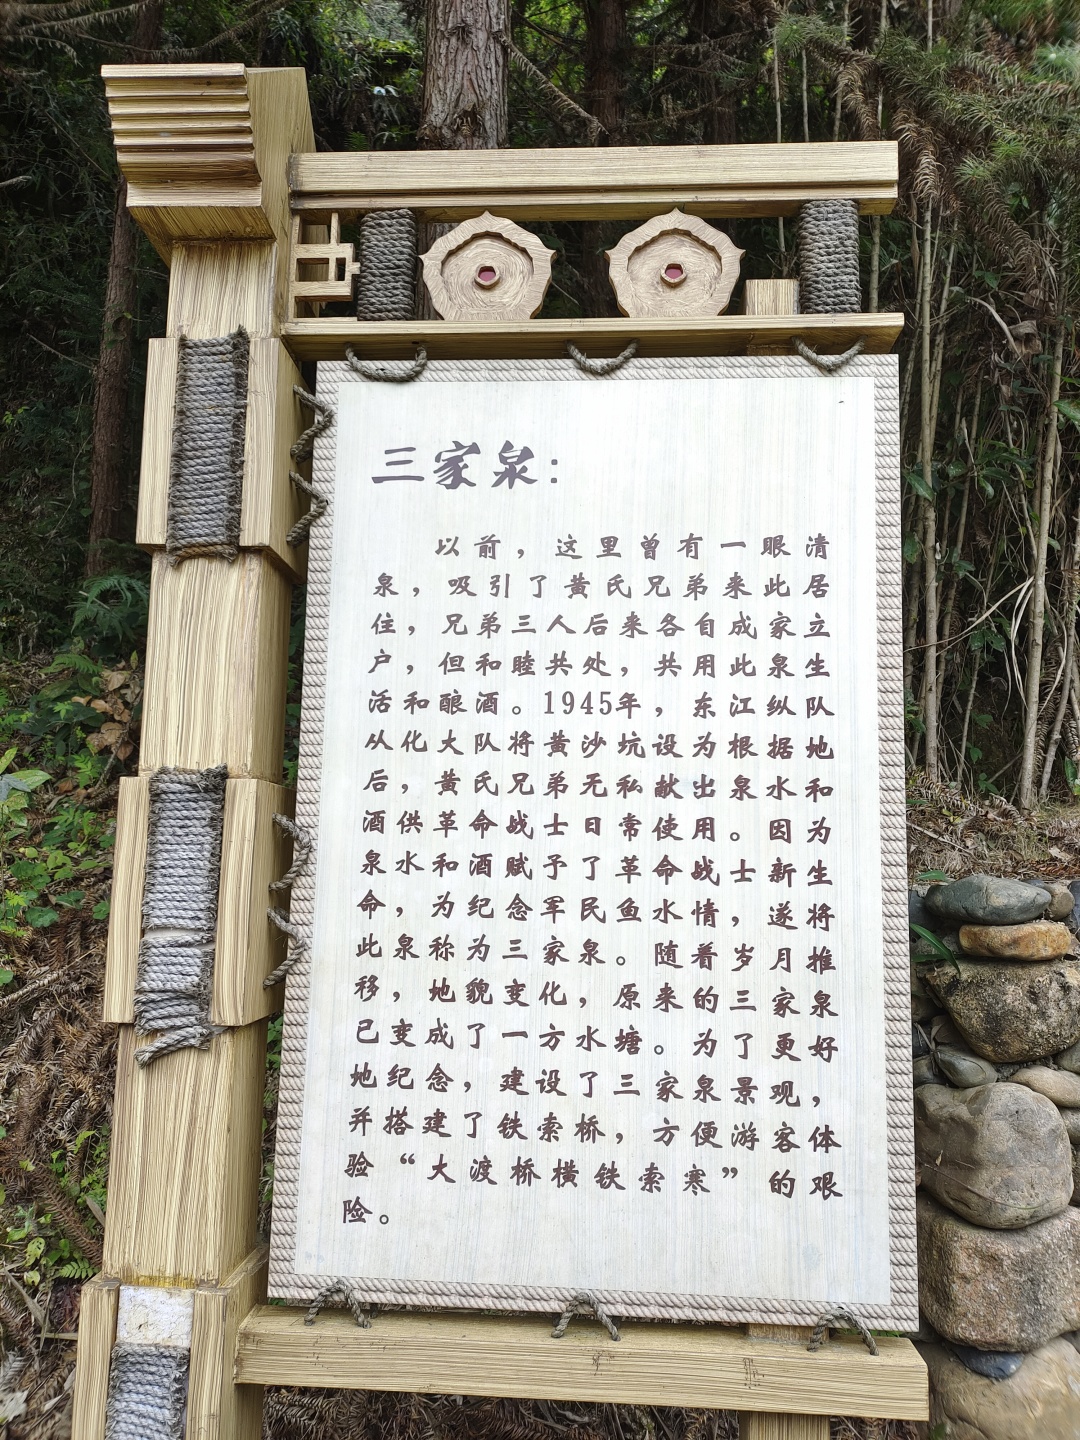 三家泉：
以前，这里曾有一眼清
泉，吸引了黄氏兄弟来此居
住，兄弟三人后来各自成家立
户，但和睦共处，共用此泉生
活和酿酒。1945年，东江纵队
从化大队将黄沙坑设为根据地
后，黄氏兄弟无私献出泉水和
酒供革命战士日常使用。因为
泉水和酒赋予了革命战士新生
命，为纪念军民鱼水情，遂将
此泉称为三家泉。随着岁月推
移，地貌变化，原来的三家泉
已变成了一方水塘。为了更好
地纪念，建设了三家泉景观，
并搭建了铁索桥，方便游客体
验“大渡桥横铁索寒”的艰
险。